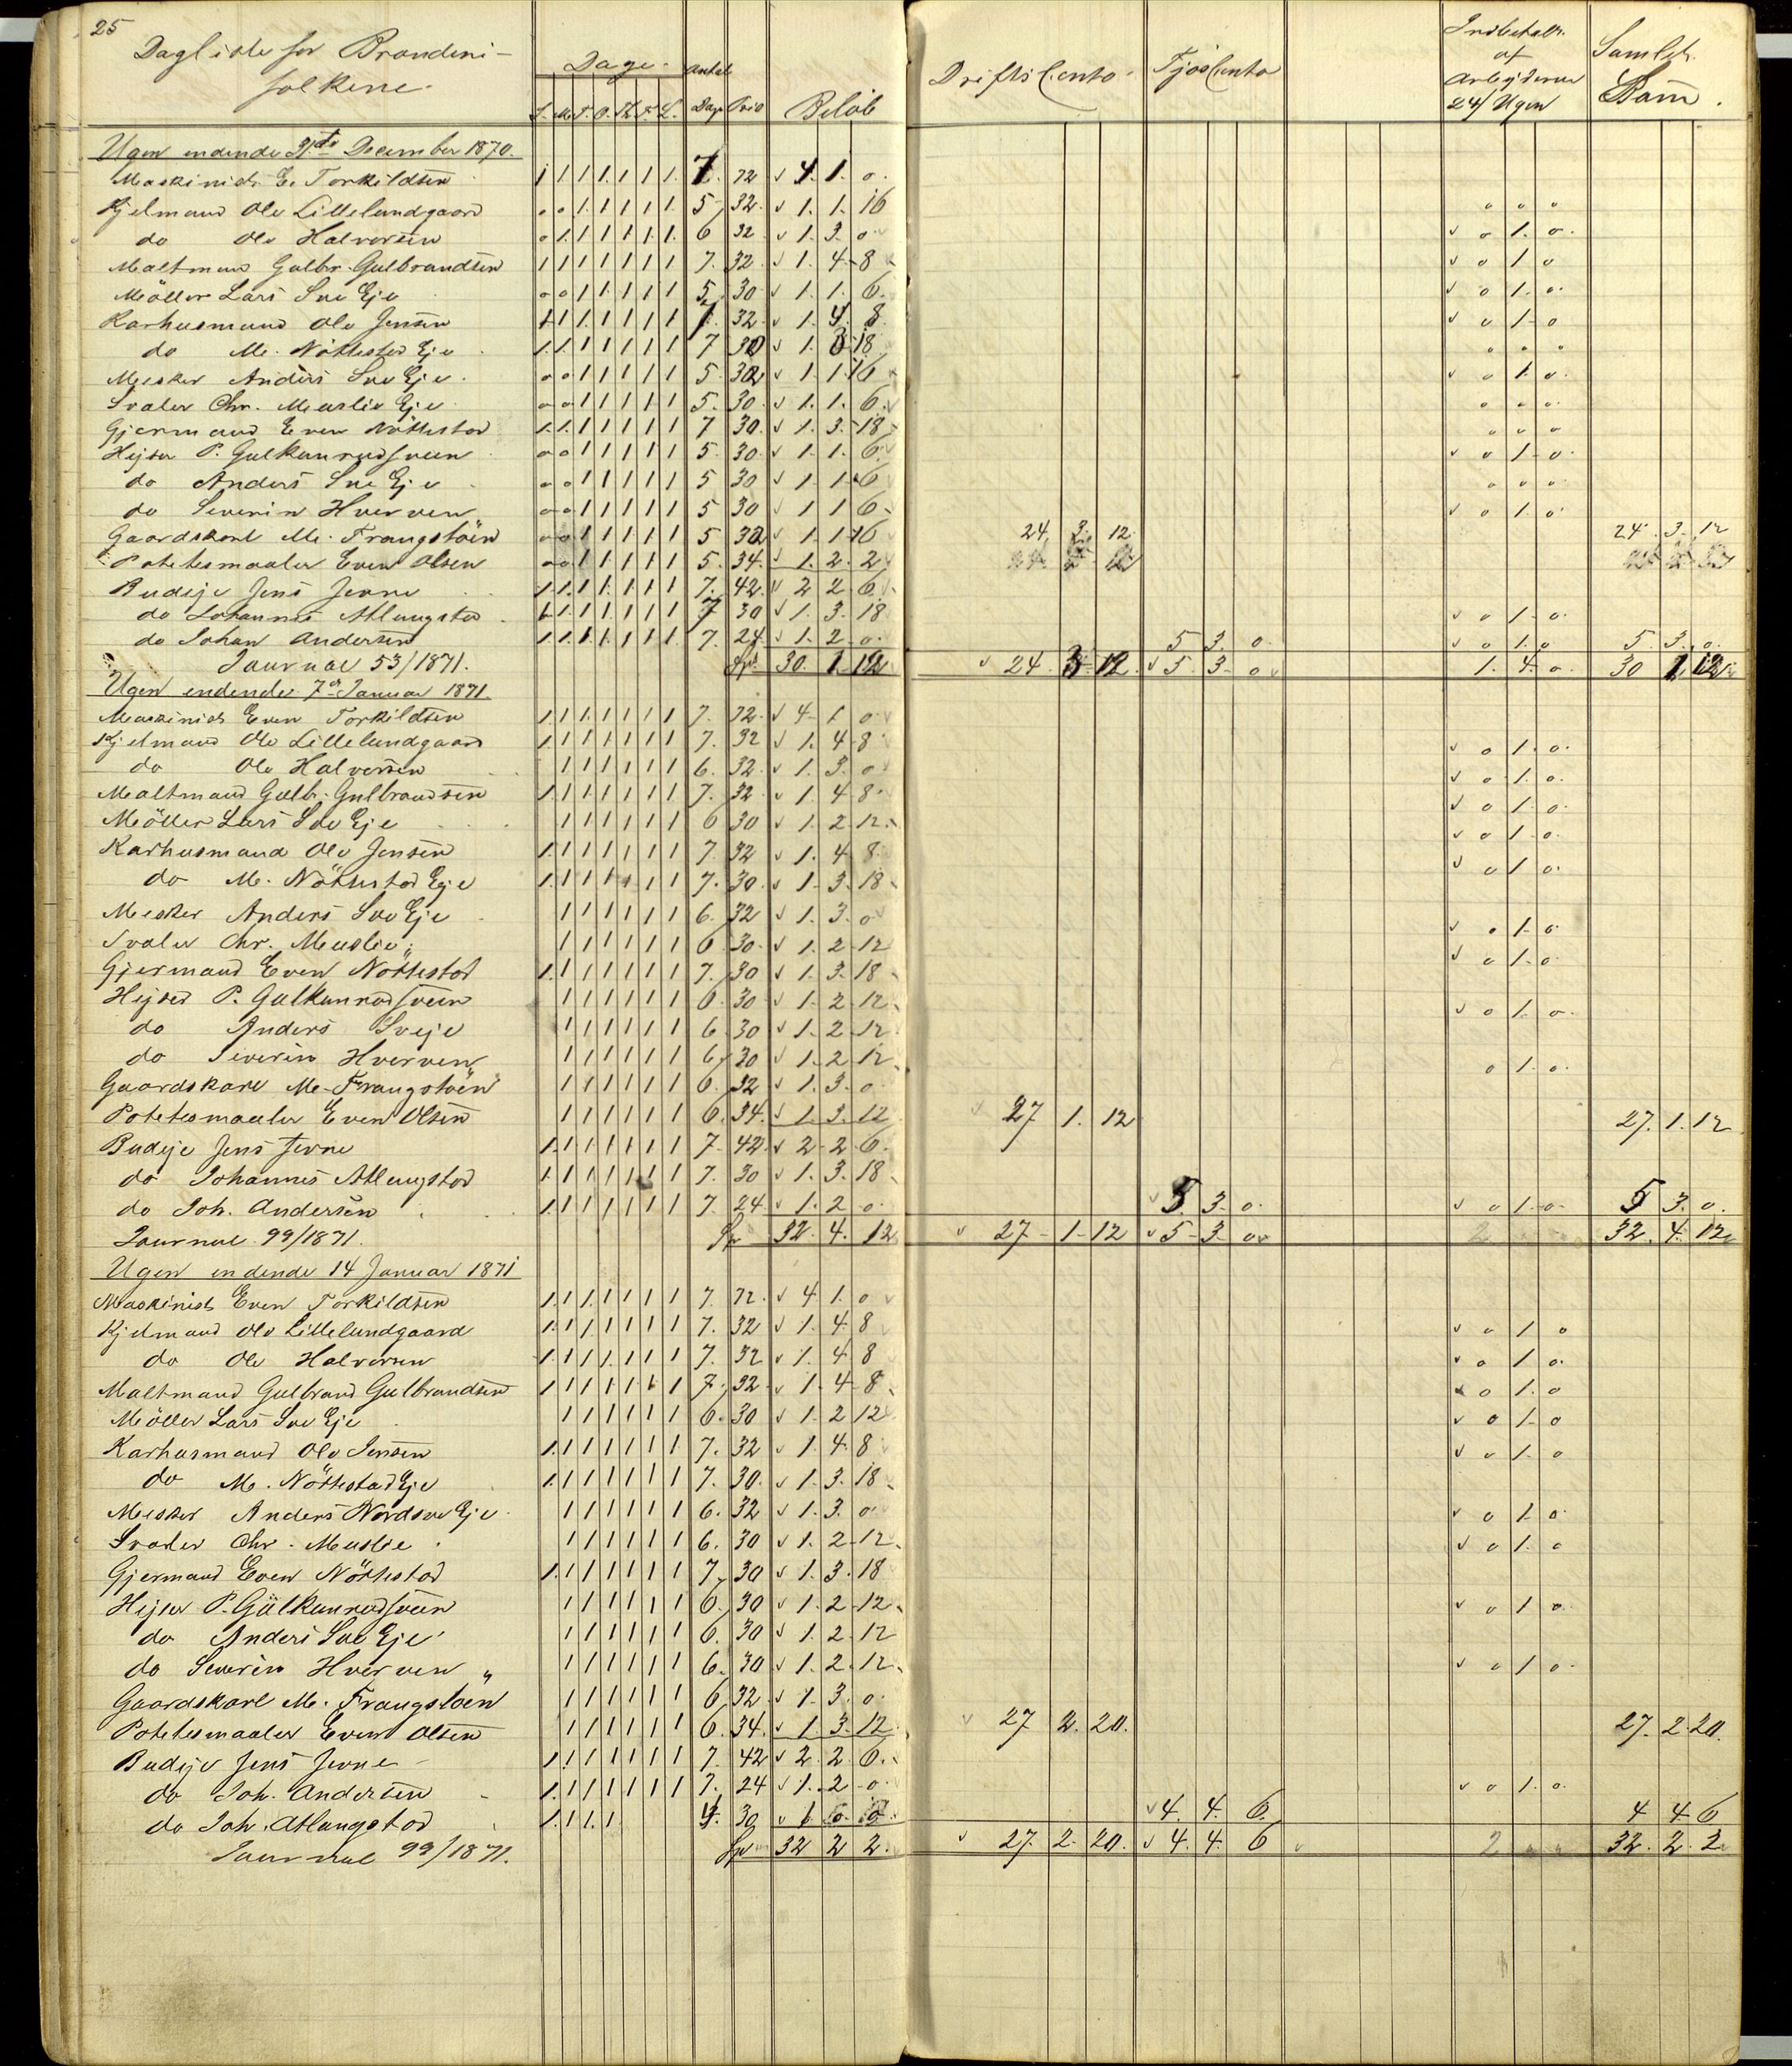 25
Dagliste for Brænderi-
folkene.
Dage. Antal
S. M. T. O. Th. F. L. Dage Pris Beløb
Driftsconto Fjösconto
Indbetalt af Arbejderne 24/ Ugen
Samlet Sum.
Ugen endende 31te December 1870.
Maskinist E. Torkildsen 1 1 1 1. 1 1 1. 7. 72 v 4. 1. 0.
Kjelmand Ole Lillelundgaard 0 0 1. 1 1 1 1. 5 32. v 1. 1. 16 0 0 0
do Ole Halvorsen 0 1. 1 1 1 1. 1. 6 32 v 1. 3. 0 v 0 1. 0.
Maltmand Gulbr. Gulbrandsen 1 1 1 1 1 1 1 7. 32. v 1. 4 8 v 0 1 0
Möller Lars Sve Eje 0 0 1 1 1 1 1 5 30 v 1. 1. 6. v 0 1. 0.
Karhusmand Ole Jensen 1 1 1 1 1 1 1 7. 32. v 1. 4. 8. v 0 1 0
do M. Nöttestad Eje 1. 1. 1 1 1 1 1 7 30 v 1. 3 18 0 0 0
Mesker Anders Sve Eje. 0 0 1 1 1 1 1 5. 32 v 1. 1 16 v 0 1. 0.
Svaler Chr. Meuslie Eje 0 0 1 1 1 1 1 5. 30. v 1. 1. 6. 0 0 0.
Gjermand Even Nöttestad 1. 1. 1 1 1 1 1 7 30. v 1. 3. 18 0 0 0
Hejser P. Gulkunrudsveen 0 0 1 1 1 1 1 5. 30. v 1. 1. 6. v 0 1 0.
do Anders Sve Eje 0 0 1 1 1 1 1 5 30 v 1 1 6 0 0 0
do Severin Hverven 0 0 1 1 1 1 1 5 30 v 1 1 6 v 0 1. 0.
Gaardskarl M. Frangstöen 0 0 1 1 1 1 1 5 32 v 1. 1 16 24. 3. 12 24. 3. 12
Potetesmaaler Even Olsen 0 0 1 1 1 1 1 5. 34. 1. 2. 2
Budeje Jens Jevne 1. 1. 1 1. 1 1 1 7. 42. v 2 2 6.
do Johannes Atlungstad 1. 1. 1 1. 1 1 1 7 30 v 1. 3. 18 v 0 1 0.
do Johan Andersen 1. 1. 1. 1. 1 1 1. 7. 24 v 1. 2. 0. 5 3. 0. v 0 1. 0 5. 3. 0.
Journal 53/1871. Sp 30. 1. 12 v 24. 3. 12. v 5. 3. 0 v 1. 4. 0. 30 1. 12
Ugen endende 7de Januar 1871.
Maskinist Even Torkildsen 1. 1 1. 1 1 1 1 7. 72. v 4 1 0
Kjelmand Ole Lillelundgaard 1. 1 1 1 1 1 1 7. 32 v 1. 4 8 v 0 1. 0.
do Ole Halvorsen 1 1 1 1 1 1 6. 32. v 1. 3. 0 v 0 1. 0.
Maltmand Gulb. Gulbrandsen 1. 1 1 1 1 1 1 7. 32. v 1 4 8 v 0 1. 0.
Möller Lars Sve Eje 1 1 1 1 1 1 6 30 v 1. 2. 12. v 0 1. 0.
Karhusmand Ole Jensen 1. 1 1 1 1 1 1 7. 32 v 1. 4 8. v 0 1 0.
do M. Nöttestad Eje 1. 1 1 1 1 1 1 7. 30. v 1. 3. 18
Mesker Anders Sve Eje 1 1 1 1 1 1 6. 32 v 1. 3. 0 v 0 1. 0
Svaler Chr. Meuslie 1 1 1 1 1 1 6 30. v 1. 2 12 v 0 1. 0.
Gjermand Even Nöttestad 1. 1 1 1 1 1 1 7. 30 v 1. 3. 18
Hejser P. Gulkunrudsveen 1 1 1 1 1 1 6. 30 v 1. 2 12 v 0 1. 0.
do Anders Sveje 1 1 1 1 1 1 6 30 v 1. 2. 12
do Severin Hverven 1 1 1 1 1 1 6 30 v 1. 2 12 0 1. 0.
Gaardskarl M. Frangstöen 1 1 1 1 1 1 6. 32 v 1. 3. 0
Potetesmaaler Even Olsen 1 1 1 1 1 1 6. 34. 1. 3. 12 v 27 1. 12 27. 1. 12
Budeje Jens Jevne 1. 1 1 1 1 1 1 7. 42. v 2 2 6.
do Johannes Atlungstad 1. 1 1 1 1 1 1 7. 30 v 1. 3. 18
do Joh. Andersen 1. 1 1 1 1 1 1 7. 24 v 1. 2 0. v 5. 3. 0. v 0 1. 0. 5 3. 0.
Journal 99/1871. Sp 32. 4. 12 v 27 1 12 v 5 3 0 2 32. 4. 12
Ugen endende 14 Januar 1871
Maskinist Even Torkildsen 1. 1 1. 1 1 1 1 7. 72. v 4 1. 0
Kjelmand Ole Lillelundgaard 1. 1 1 1 1 1 1 7. 32 v 1. 4 8 v 0 1. 0
do Ole Halvorsen 1. 1 1 1. 1 1 1 7. 32 v 1. 4 8 v 0 1 0.
Maltmand Gulbrand Gulbrandsen 1 1 1 1 1 1 1 7. 32 v 1. 4 8 v 0 1. 0
Möller Lars Sve Eje 1 1 1 1 1 1 6. 30 v 1 2 12 v 0 1. 0
Karhusmand Ole Jensen 1. 1 1 1 1 1 1 7. 32 v 1. 4. 8 v 0 1. 0
do M. Nöttestad Eje 1. 1 1 1 1 1 1 7. 30. v 1. 3. 18
Mesker Anders Nordsve Eje 1 1 1 1 1 1 6. 32 v 1. 3. 0 v 0 1. 0.
Svaler Chr. Meuslie 1 1 1 1 1 1 6. 30 v 1. 2 12 v 0 1. 0
Gjermand Even Nöttestad 1. 1 1 1 1 1 1 7. 30 v 1. 3. 18
Hejser P. Gulkunrudsveen 1 1 1 1 1 1 6. 30 v 1. 2 12 v 0 1 0.
do Anders Sve Eje 1 1 1 1 1 1 6. 30 v 1. 2. 12
do Severin Hverven " 1 1 1 1 1 1 6. 30 v 1. 2. 12 v 0 1 0.
Gaardskarl M. Frangstöen 1 1 1 1 1 1 6 32 v 1. 3. 0.
Potetesmaaler Even Olsen 1 1 1 1 1 1 6. 34. v 1. 3. 12 v 27 2. 20. 27. 2 20.
Budeje Jens Jevne 1. 1 1 1 1 1 1 7. 42 v 2. 2. 6.
do Joh. Andersen 1. 1 1 1 1 1 1 7. 24 v 1. 2 0. v 0 1. 0.
do Joh. Atlungstad 1. 1 1. 1 4. 30 v 1 0 0 v 4. 4. 6. 4 4 6
Journal 99/1871. Sp 32 2 2. v 27. 2. 20. v 4. 4. 6 2 32. 2. 2